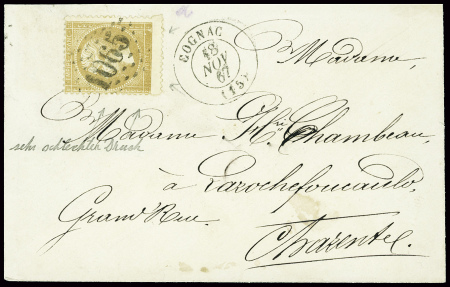 1065
COGNAC
18
NOV
67
(15)
Madame,
Madame Chambeau,
sehr Druck
à Larochefoucauld,
Grand Rue.
Charente.